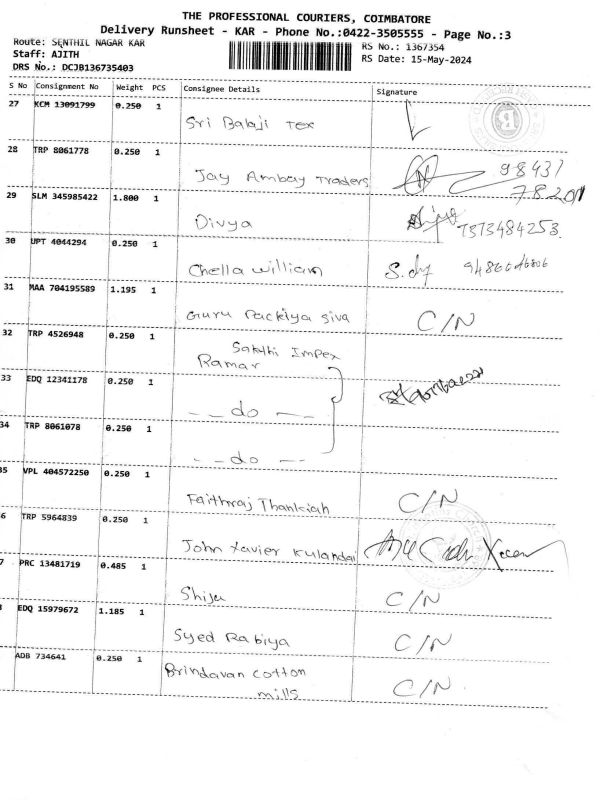 THE PROFESSIONAL COURIERS, COIMBATORE
Delivery Runsheet - KAR - Phone No.:0422-3505555 - Page No.:3
Route: SENTHIL NAGAR KAR
RS No.: 1367354
Staff: AJITH
RS Date: 15-May-2024
DRS No.: DCJB136735403
S No Consignment No Weight PCS Consignee Details Signature
27 KCM 13091799 0.250 1
Sri Balaji Tex
28 TRP 8061778 0.250 1
Jay Ambay Traders 98431
78201
29 SLM 345985422 1.800 1
Divya 7373484253.
30 UPT 4044294 0.250 1
Chella William
31 MAA 704195589 1.195 1
Guru Packiya siva C/N
32 TRP 4526948 0.250 1
Sakthi Impex
Ramar
33 EDQ 12341178 0.250 1
- - do - -
34 TRP 8061078 0.250 1
- - do - -
35 VPL 404572250 0.250 1
Faithraj Thankiah C/N
6 TRP 5964839 0.250 1
John Xavier Kulandai
7 PRC 13481719 0.485 1
Shiju C/N
EDQ 15979672 1.185 1
Syed Rabiya C/N
ADB 734641 0.250 1
Brindavan cotton
mills C/N